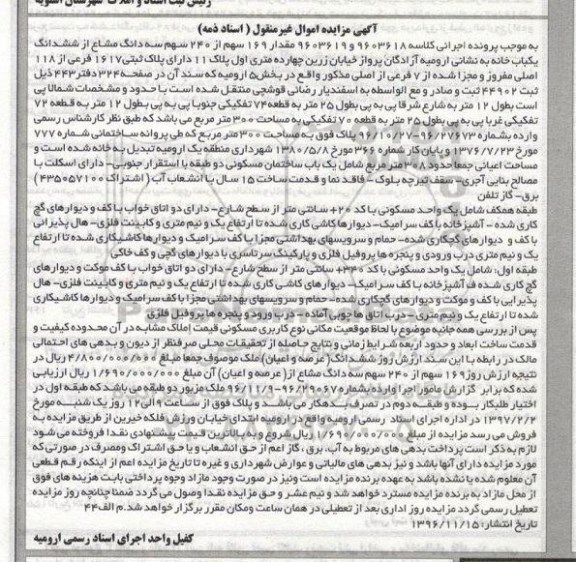 رئیس ثبت اسناد و املاک شهرستان اشنویه
آگهی مزایده اموال غیرمنقول ( اسناد ذمه)
به موجب پرونده اجرائی کلاسه ۹۶۰۳۶۱۸ و ۹۶۰۳۶۱۹ مقدار ۱۶۹ سهم از ۲۴۰ سهم سه دانگ مشاع از ششدانگ
یکباب خانه به نشانی ارومیه آزادگان پرواز خیابان زرین چهارده متری اول پلاک ۱۱ دارای پلاک ثبتی ۱۶۱۷ فرعی از ۱۱۸
اصلی مفروز و مجزا شده از ۷ فرعی از اصلی مذکور واقع در بخش ۵ ارومیه که سند آن در صفحه ۳۲۴ دفتر ۴۴۳ ذیل
ثبت ۴۴۹۰۲ ثبت و صادر و مع الواسطه به اسفندیار رضائی قوشچی منتقل شده است با حدود و مشخصات شمالا پی
است بطول ۱۲ متر به شارع شرقا پی به پی بطول ۲۵ متر به قطعه ۷۴ تفکیکی جنوبا پی به پی بطول ۱۲ متر به قطعه ۷۲
تفکیکی غربا پی به پی بطول ۲۵ متر به قطعه ۷۰ تفکیکی به مساحت ۳۰۰ متر مربع می باشد که طبق نظر کارشناس رسمی
وارده بشماره ۹۶/۲۷۶۷۳-۹۶/۱۰/۲۷ پلاک فوق به مساحت ۳۰۰ متر مربع که طی پروانه ساختمانی شماره ۷۷۷
مورخ ۱۳۷۶/۷/۲۳ و پایان کار شماره ۳۶۶ مورخ ۱۳۸۰/۵/۸ شهرداری منطقه یک ارومیه تبدیل به خانه شده است و
مساحت اعیانی جمعا حدود ۳۰۸ متر مربع شامل یک باب ساختمان مسکونی دو طبقه با استقرار جنوبی- دارای اسکلت با
مصالح بنایی آجری- سقف تیرچه بلوک - فاقد نما و قدمت ساخت ۱۵ سال با انشعاب آب ( اشتراک ۴۳۵۰۵۷۱۰۰)
برق- گاز تلفن
طبقه همکف شامل یک واحد مسکونی با کد ۲۰+ سانتی متر از سطح شارع- دارای دو اتاق خواب با کف و دیوارهای گچ
کاری شده - آشپزخانه با کف سرامیک- دیوارها کاشی کاری شده تا ارتفاع یک و نیم متری و کابینت فلزی- هال پذیرائی
با کف و دیوارهای گچکاری شده- حمام و سرویسهای بهداشتی مجزا با کف سرامیک و دیوارها کاشیکاری شده تا ارتفاع
یک و نیم متری درب ورودی و پنجره ها پروفیل فلزی و پارکینگ سرتاسری با دیوارهای گچی و کف خاکی
طبقه اول: شامل یک واحد مسکونی با کد ۳۴۰+ سانتی متر از سطح شارع- دارای دو اتاق خواب با کف موکت و دیوارهای
گچ کاری شده و آشپزخانه با کف سرامیک- دیوارهای کاشی کاری شده تا ارتفاع یک و نیم متری و کابینت فلزی- هال
پذیرایی با کف و موکت و دیوارهای گچکاری شده- حمام و سرویسهای بهداشتی مجزا با کف سرامیک و دیوارها کاشیکاری
شده تا ارتفاع یک و نیم متری - درب اتاق ها چوبی آماده - درب ورود و پنجره ها پروفیل فلزی
پس از بررسی همه جانبه موضوع با لحاظ موقعیت مکانی نوع کاربری مسکونی قیمت املاک مشابه در آن محدوده کیفیت و
قدمت ساخت ابعاد و حدود اربعه شرایط زمانی و نتایج حاصله از تحقیقات محلی صرفنظر از دیون و بدهی های احتمالی
مالک در رابطه با این سند ارزش روز ششدانگ( عرصه و اعیان) ملک موصوف جمعا مبلغ ۴/۸۰۰/۰۰۰/۰۰۰ ریال در
نتیجه ارزش روز ۱۶۹ سهم از ۲۴۰ سهم سه دانگ مشاع از( عرصه و اعیان) آن مبلغ ۱/۶۹۰/۰۰۰/۰۰۰ ریال ارزیابی
شده که برابر گزارش مامور اجرا وارده بشماره ۹۶/۲۹۰۶۷-۹۶/۱۱/۹ ملک مزبور دو طبقه می باشد که طبقه اول در
اختیار طلبکار بوده و طبقه دوم در تصرف بدهکار می باشد و پلاک فوق از ساعت ۹ الی ۱۲ روز یک شنبه مورخ
۱۳۹۷/۲/۲ در اداره اجرای اسناد رسمی ارومیه واقع در ارومیه ابتدای خیابان ورزش فلکه خیرین از طریق مزایده به
فروش می رسد مزایده از مبلغ ۱/۶۹۰/۰۰۰/۰۰۰ ریال شروع و به بالاترین قیمت پیشنهادی نقدا فروخته می شود
لازم به ذکر است پرداخت بدهی های مربوط به آب، برق ، گاز اعم از حق انشعاب و یا حق اشتراک ومصرف در صورتی که
مورد مزایده دارای آنها باشد و نیز بدهی های مالیاتی و عوارض شهرداری و غیره تا تاریخ مزایده اعم از اینکه رقم قطعی
آن معلوم شده یا نشده باشد به عهده برنده مزایده است ونیز در صورت وجود مازاد وجوه پرداختی بابت هزینه های فوق
از محل مازاد به برنده مزایده مسترد خواهد شد و نیم عشر و حق مزایده نقدا وصول می گردد ضمنا چنانچه روز مزایده
تعطیل رسمی گردد مزایده روز اداری بعد از تعطیلی در همان ساعت ومکان مقرر برگزار خواهد شد. م الف ۴۴
تاریخ انتشار: ۱۳۹۶/۱۱/۱۵
کفیل واحد اجرای اسناد رسمی ارومیه